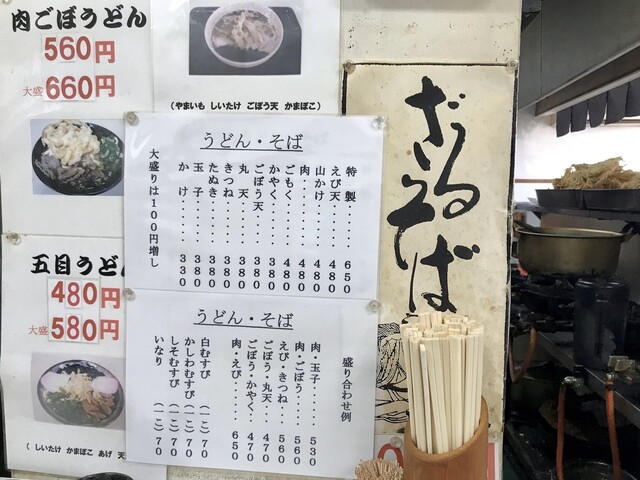 肉ごぼうどん
560円
大盛 660円
五目うどん
480円
大盛 580円
( しいたけ かまぼこ あげ 天
(やまいも しいたけ ごぼう天 かまぼこ)
うどん・そば
特製‥‥‥650
えび天‥‥480
山かけ‥‥480
肉‥‥‥‥480
ごもく‥‥480
かやく‥‥380
ごぼう天‥380
丸天‥‥‥380
きつね‥‥380
たぬき‥‥380
玉子‥‥‥380
かけ‥‥‥330
大盛りは100円増し
うどん・そば
盛り合わせ例
肉・玉子‥‥‥530
肉・ごぼう‥‥560
えび・きつね‥560
ごぼう・丸天‥470
ごぼう・かやく‥470
肉・えび‥‥‥650
白むすび (一こ)70
かしわむすび (一こ)70
しそむすび (一こ)70
いなり (一こ)70
ざるそば